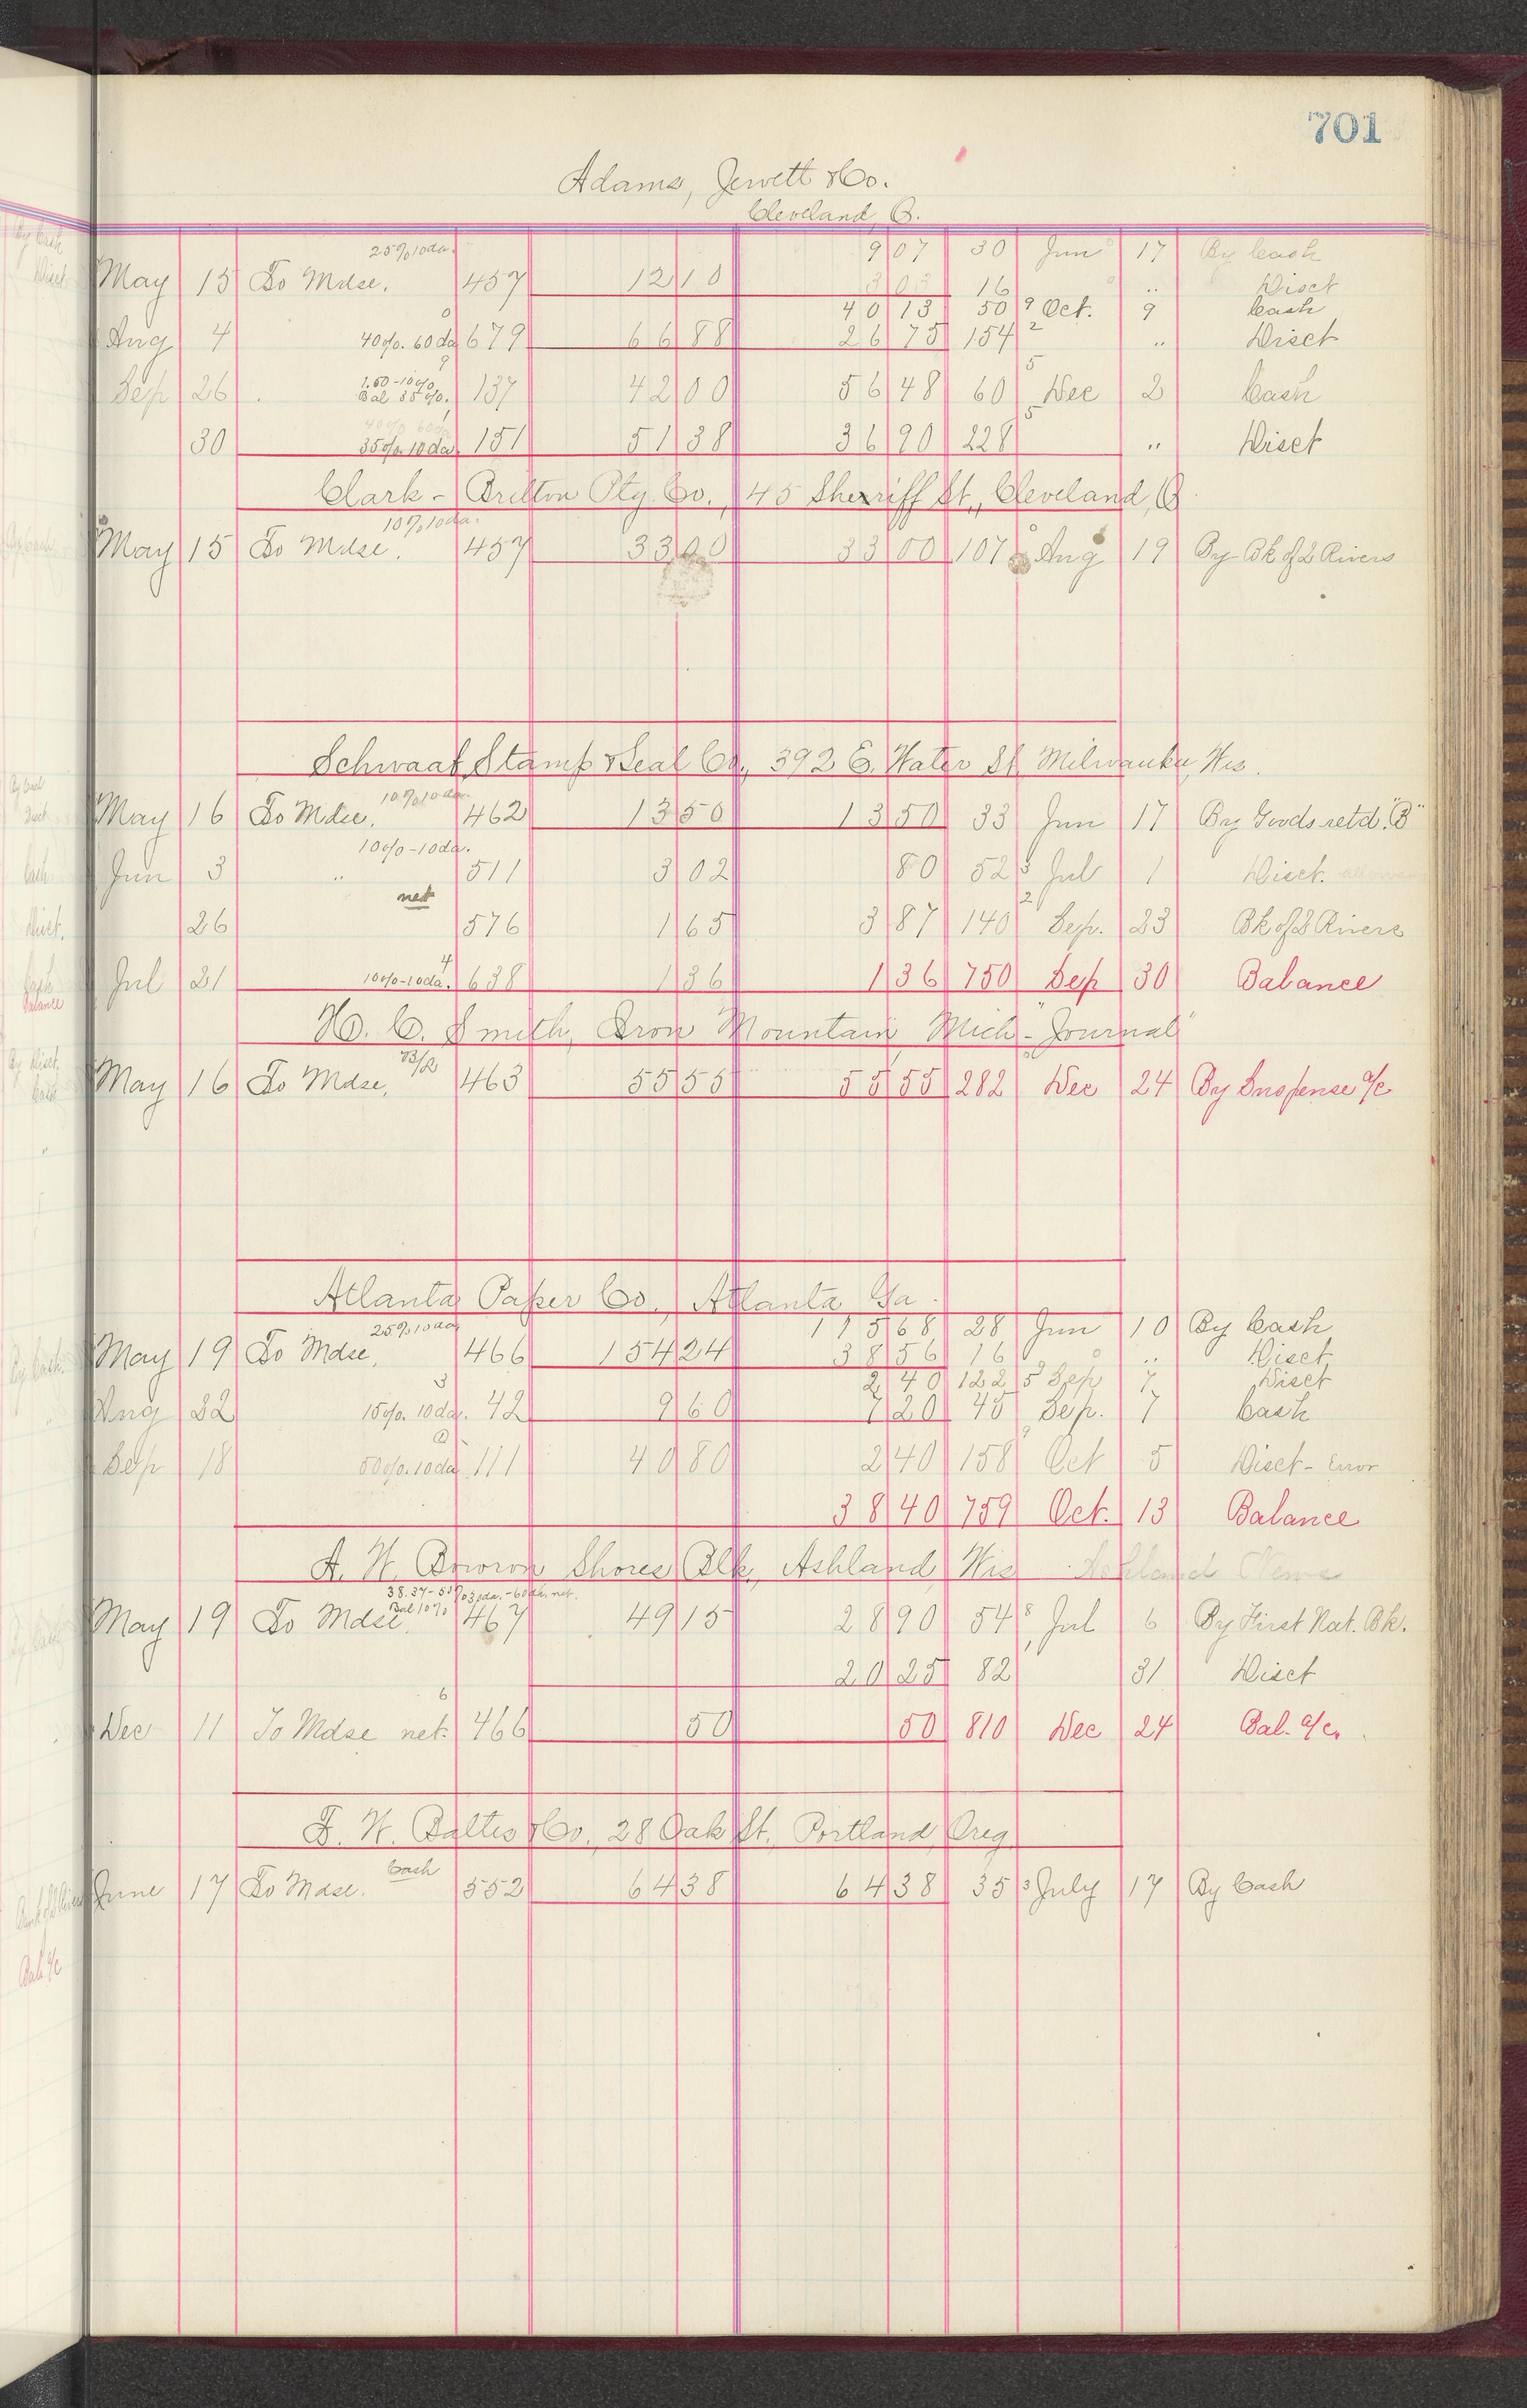 701
Adams, Jewett & Co.
Cleveland, O.
25% 10 da. 9 07 30 Jun 17 By Cash
May 15 To Mdse. 457 12 10 3 03 16 .. Disct
40 13 50 9 Oct. 9 Cash
Aug 4 40%. 60 da 679 66 88 26 75 154 2 .. Disct
Sep 26 1.50-10% Bal 35%. 137 42 00 56 48 60 5 Dec 2 Cash
40% 60 da
30 35%. 10 da. 151 51 38 36 90 228 5 .. Disct
Clark-Britton Ptg. Co., 45 Sherriff St., Cleveland, O.
10% 10 da.
May 15 To Mdse. 457 33 00 33 00 107 Aug 19 By Bk of 2 Rivers
Schwaab Stamp & Seal Co., 392 E. Water St. Milwaukee, Wis.
10% 10 da.
May 16 To Mdse. 462 13 50 13 50 33 Jun 17 By Goods retd. "B"
10%-10 da.
Jun 3 .. 511 3 02 80 52 3 Jul 1 Disct.
net
26 576 1 65 3 87 140 2 Sep. 23 Bk of 2 Rivers
Jul 21 10%-10 da. 4 638 1 36 1 36 750 Sep 30 Balance
H. C. Smith, Iron Mountain Mich-"Journal"
May 16 To Mdse. 463 55 55 55 55 282 Dec 24 By Suspense a/c
Atlanta Paper Co., Atlanta Ga.
25% 10 da 115 68 28 Jun 10 By Cash
May 19 To Mdse. 466 154 24 38 56 16 .. Disct
2 40 122 5 Sep 7 Disct
Aug 22 15%. 10 da. 3 42 9 60 7 20 45 Sep. 7 Cash
Sep 18 50%. 10 da 111 40 80 2 40 158 Oct 5 Disct - Error
38 40 759 Oct. 13 Balance
A. W. Bowron Shores Blk, Ashland, Wis Ashland News
38.37-50% 30 da.-60 da. net.
Bal 10%
May 19 To Mdse. 467 49 15 28 90 54 8 Jul 6 By First Nat. Bk.
20 25 82 1 31 Disct
Dec 11 To Mdse net. 6 466 50 50 810 Dec 24 Bal. a/c.
F. W. Baltes & Co., 28 Oak St., Portland, Oreg
Cash
June 17 To Mdse. 552 64 38 64 38 35 3 July 17 By Cash